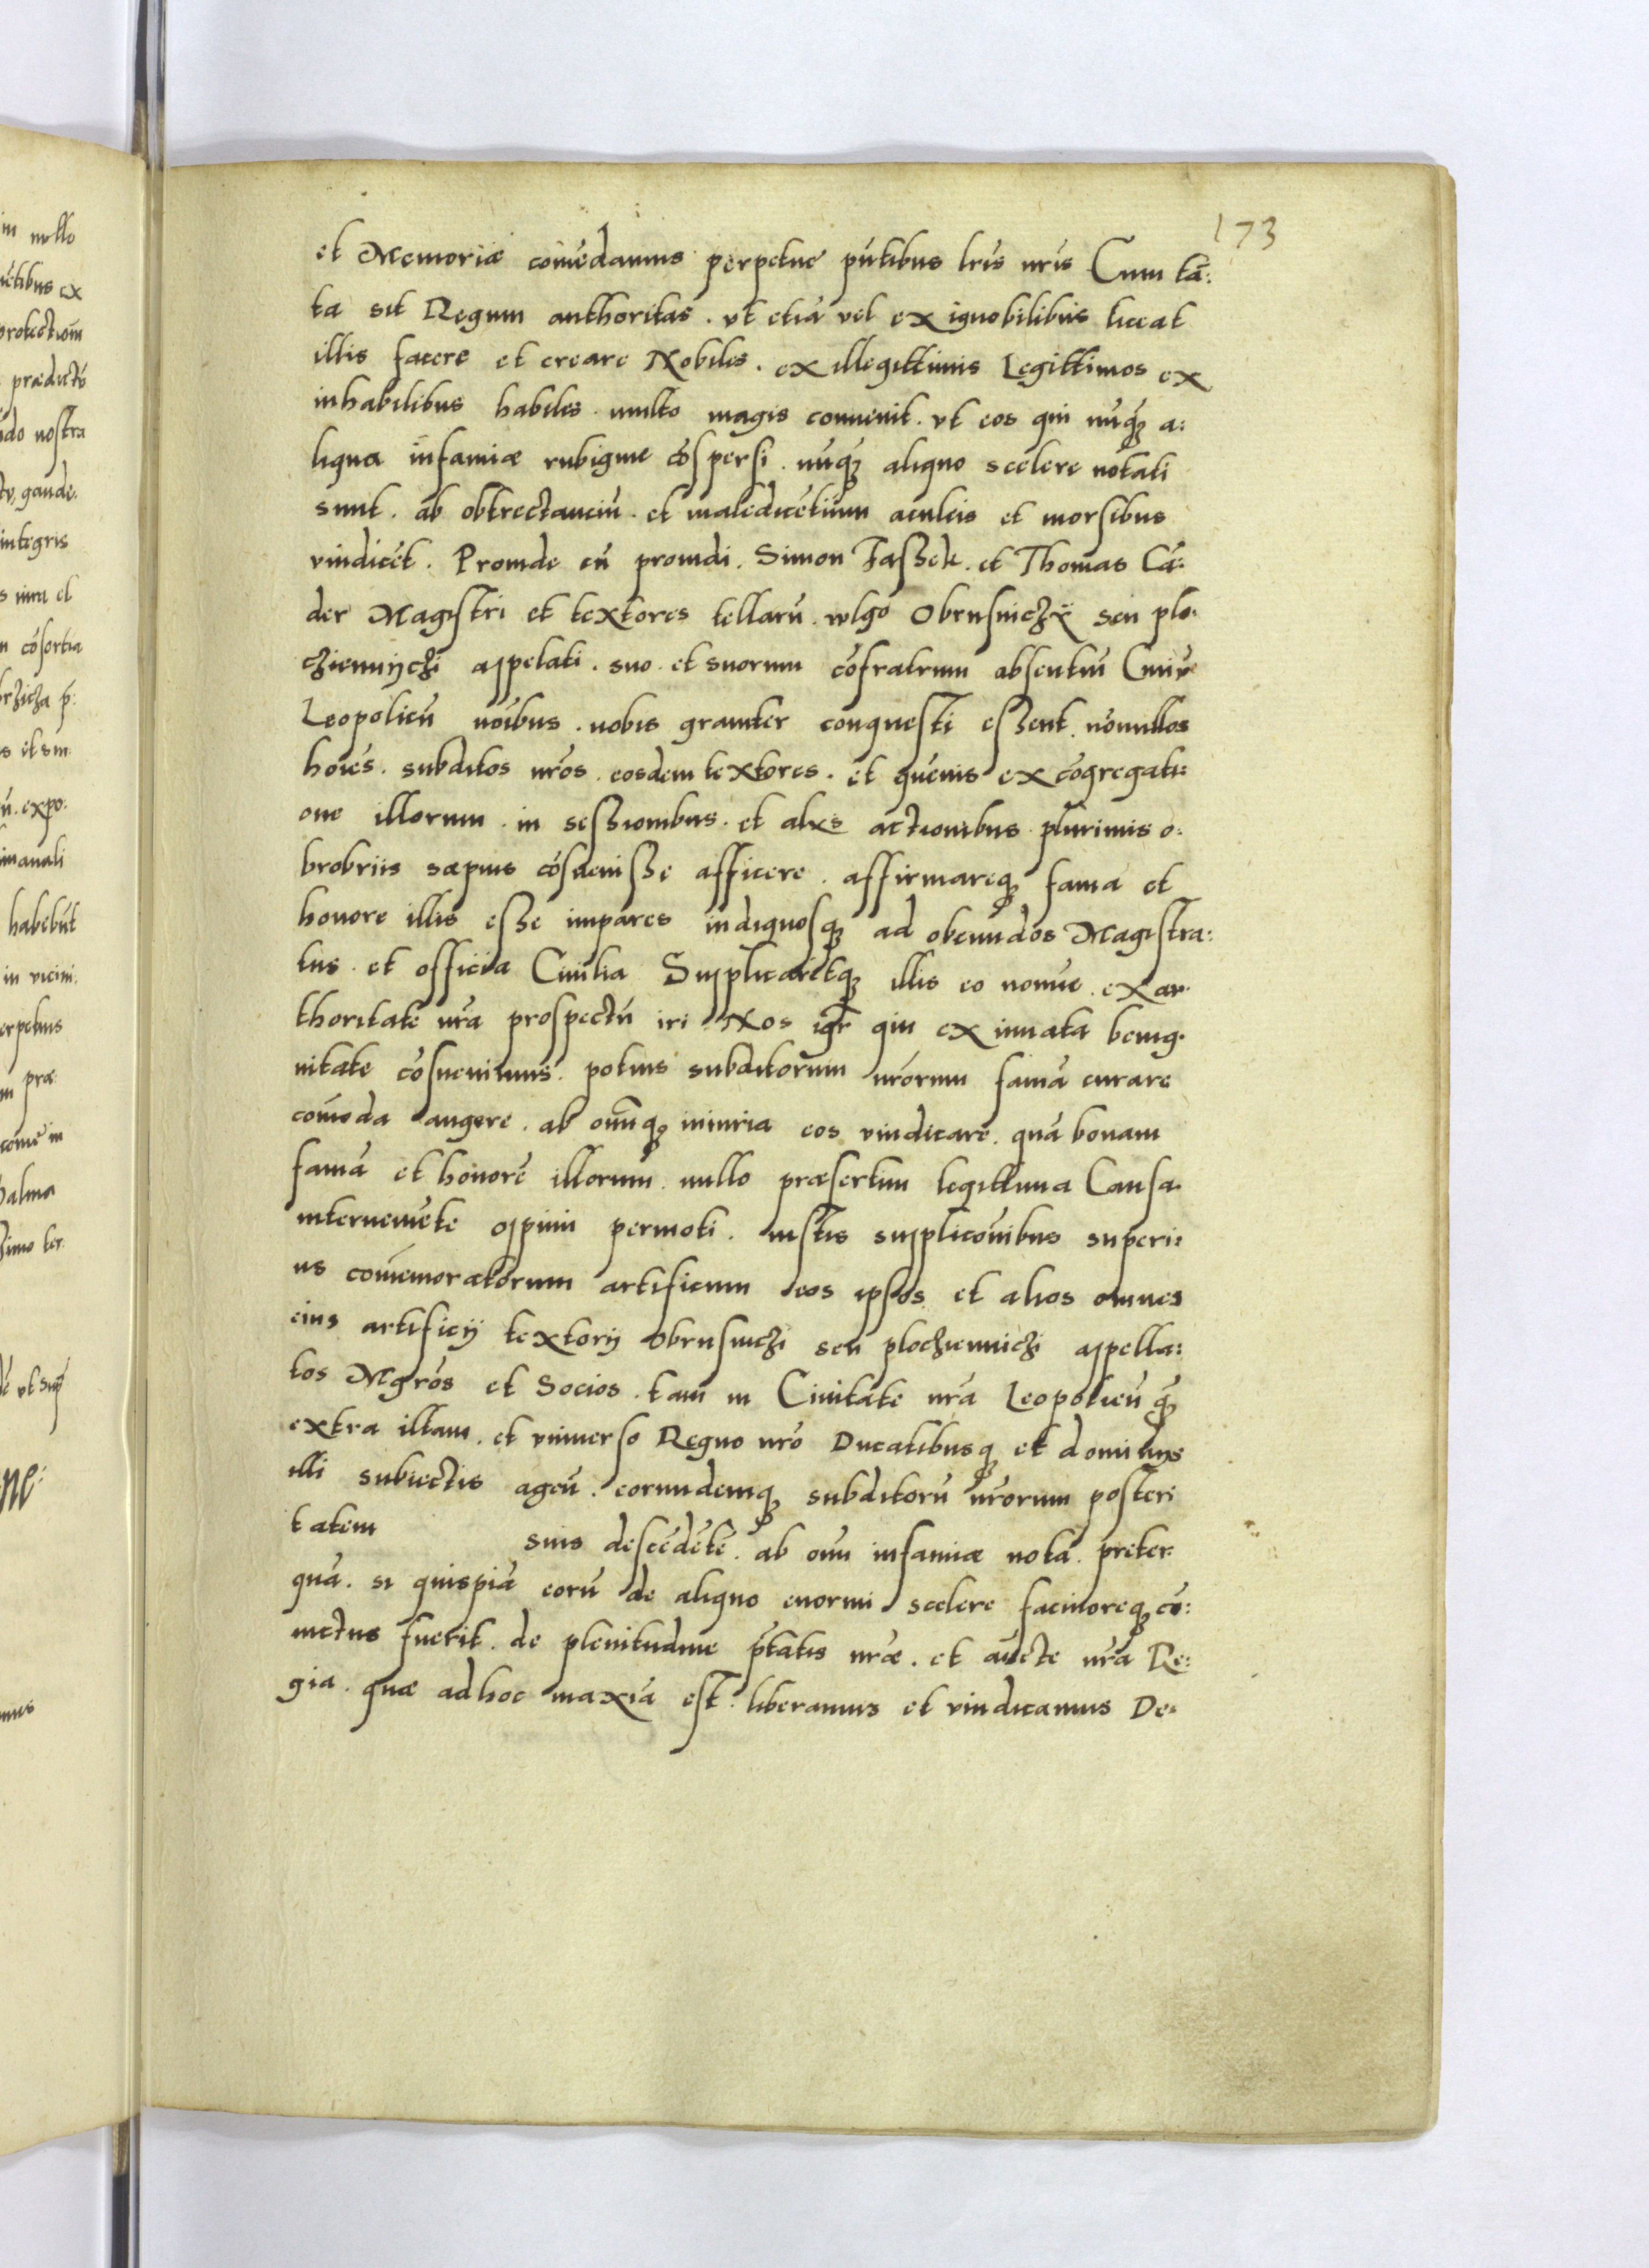 173
et Memoriæ cōmēdamus perpetuæ pn̄tibus lr̄is nr̄is Cum tā:
ta sit Regum authoritas . vt etiā vel ex ignobilibus liceat
illis facere et creare Nobiles . ex illegittimis Legittimos ex
inhabilibus habiles . multo magis conuenit . vt eos qui nūq̄ꝫ a:
liqua infamiæ rubigine cōspersi . nūq̄ꝫ aliquo scelere notati
sunt . ab obtrectanciū . et maledicētium aculeis et morsibus
vindicēt . Proinde cū prouidi . Simon Jaſzek . et Thomas Cā:
der Magistri et textores tellarū . vlgo Obrusniczÿ seu plo:
cziennyczi appelati . suo . et suorum cōfratrum absentiū Ciuiū
Leopolieñ noībus . nobis grauiter conquesti eſzent . nōnullos
hoīes . subditos nr̄os . eosdem textores . et quēuis ex cōgregati:
one illorum . in seſzionibus . et alys actionibus . plurimis o:
brobriis sæpius cōsueuiſze afficere . affirmareqꝫ fama et
honore illis eſze impares indignosqꝫ ad obeundos Magistra:
tus . et officia Ciuilia Supplicarētqꝫ illis eo nomīe . ex au:
thoritate nr̄a prospectū iri . Nos igr̄ qui ex innata benig:
nitate cōsueuimus . potius subditorum nr̄orum famā curare
cōmoda augere . ab om̄iqꝫ iniuria eos vindicare . quā bonam
famā et honorē illorum . nullo præsertim legittima Causa
interueniēte oppini permoti . iustis supplicōnibus superi:
us cōmemoratorum artificum eos ipsos et alios omnes
eius artificij textorij obrusniczi seu plocziennichi appella:
tos Mgr̄os et Socios . tam in Ciuitate nr̄a Leopolieñ q̄ꝫ
extra illam . et vniuerso Regno nr̄o Ducatibusqꝫ et dominijs
illi subiectis ageñ . eorundemqꝫ subditorū nr̄orum posteri
tatem suis descēdētē . ab om̄i infamiæ nota . preter:
quā . si quispiā eorū de aliquo enormi scelere facinoreqꝫ cō:
uictus fuerit . de plenitudine p̄tatis nr̄æ . et auc̄te nr̄a Re:
gia . quæ ad hoc maxīa est . liberamus et vindicamus De: